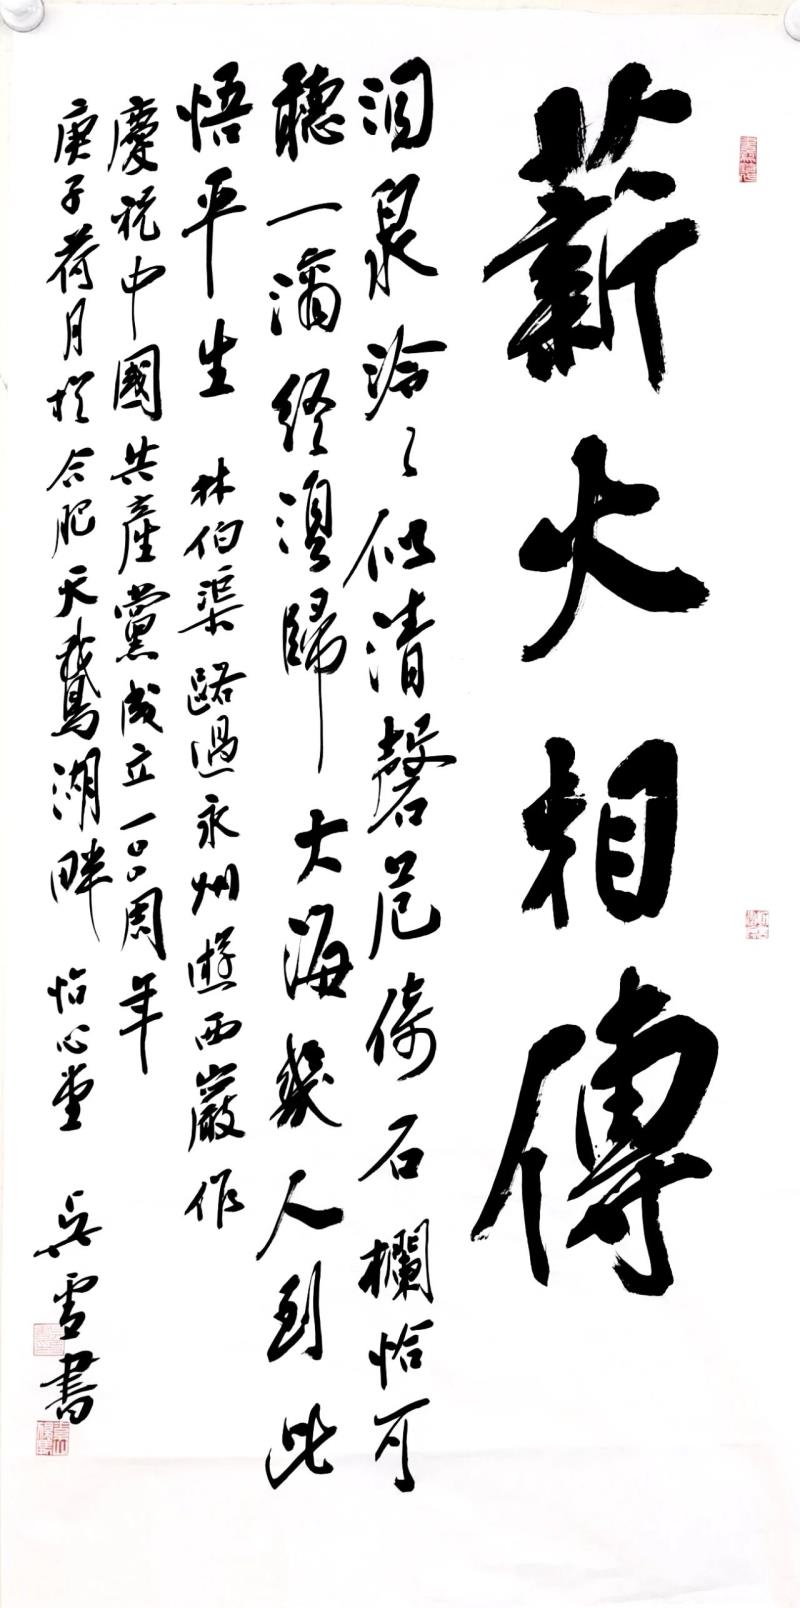 薪火相傳
洞泉泠々似清磬危倚石欄恰可
聽一滴終須歸大海幾人到此
悟平生 林伯渠路過永州遊西巖作
慶祝中國共産黨成立一〇〇周年
庚子荷月於合肥天鵝湖畔 怡心堂 吳雪書